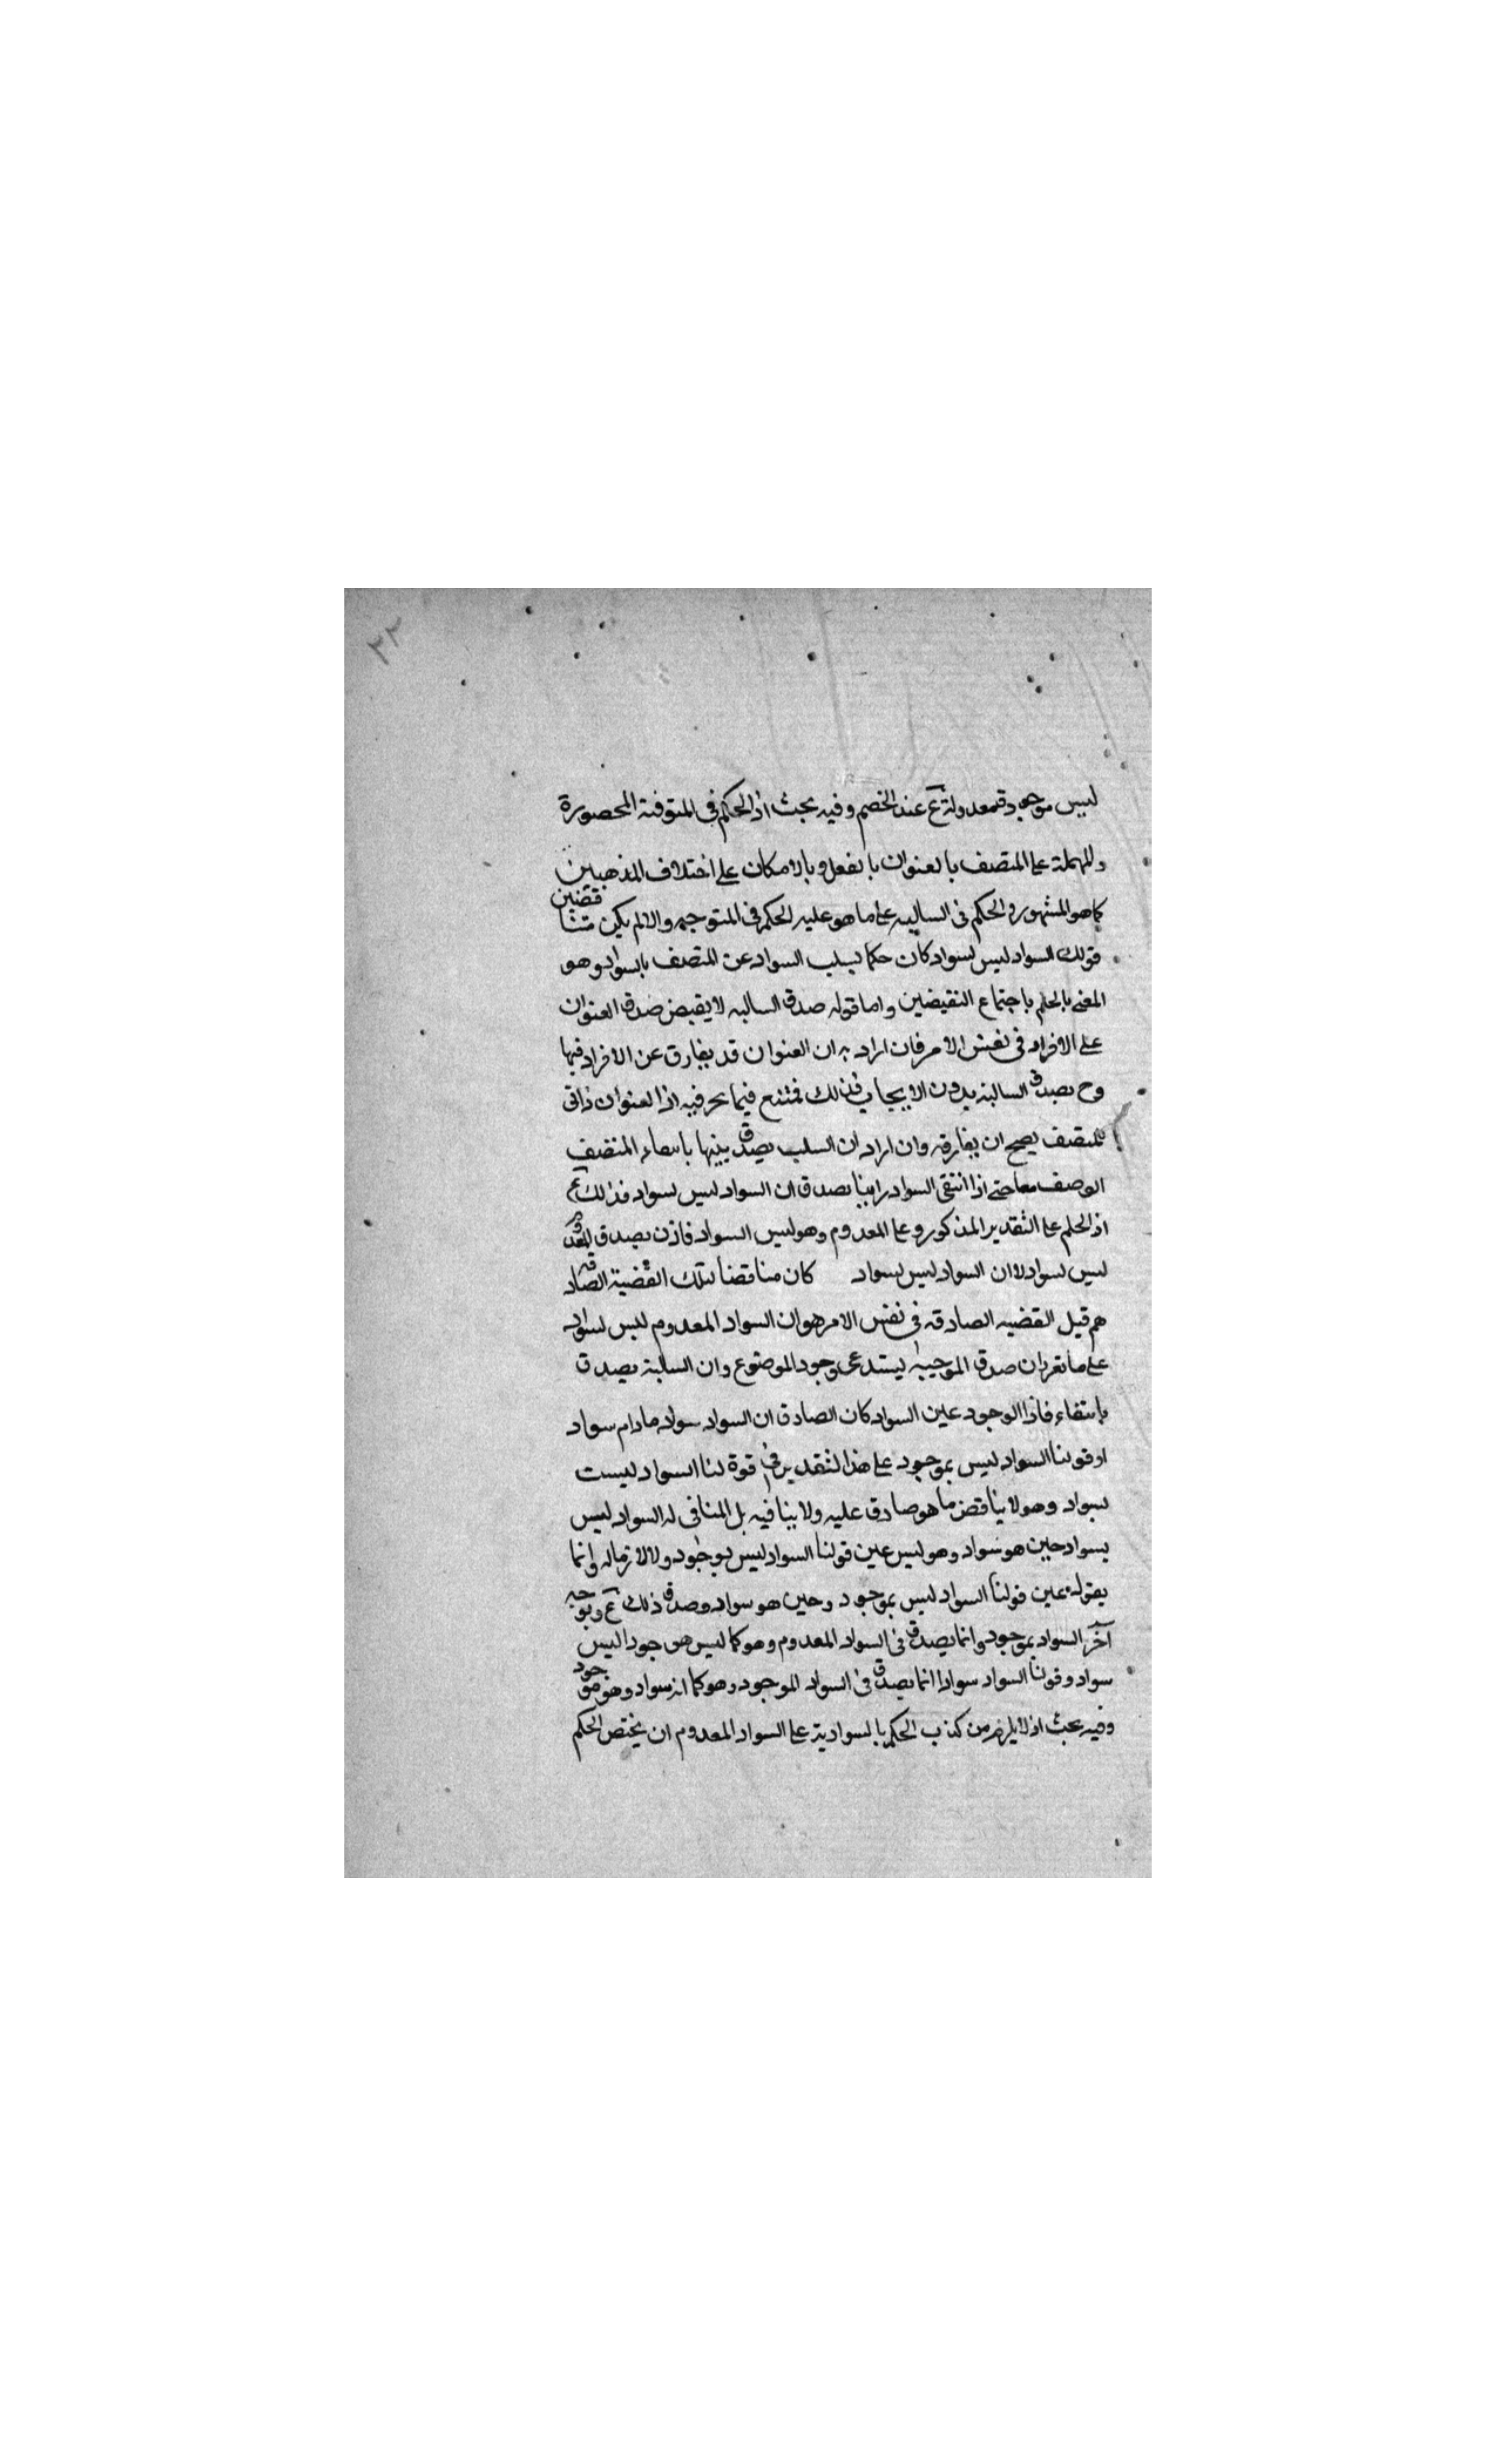 ٢٢
ليس موجود قمعدولة ع عند الخصم وفيه بحث اذ الحكم في المتوفنة المحصورة
والمهملة على المتصف بالعنوان بالفعل وبالامكان على اختلاف المذهبين
كما هو المشهور والحكم في السالبه على ما هو عليه الحكم في المتوجبه والا لم يكن متنا قضين
قولك السواد ليس لسواد كان حكما بسلب السواد عن المتصف بالسواد وهو
المعنى بالحلم باجتماع النقيضين واما قوله صدق السالبه لا يقبض صدق العنوان
على الافراد في نفس الامر فان اراد به ان العنوان قد يفارق عن الافراد فيها
وح يصدق السالبة بدون الايجاب فذلك فمتنع فيما نحن فيه اذ العنوان ذاتى
للمتصف يصح ان يفارقه وان اراد ان السلب يصدق بينها بانتفاء المتصف
الوصف معا حتى اذا انتقى السواد راينا يصدق ان السواد ليس لسواد فذلك ع
اذ الحلم على التقدير المذكور وعلى المعدوم وهو ليس السواد فاذن يصدق المعدوم
ليس لسواد لا ان السواد ليس لسواد كان مناقضا لتلك القضية الصادقه
هم قيل القضيه الصادقه في نفس الامر هو ان السواد المعدوم ليس لسواد
على ما تقر ان صدق الموجيبه ليستدعى وجود الموضوع وان السالبة يصدق
بانتفاء فاذا الوجود عين السواد كان الصادق ان السواد سواد مادام سواد
او قولنا السواد ليس بموجود على هذا التقدير في قوة لنا السواد ليست
لسواد وهو لا يناقض ما هو صادق عليه ولا ينافيه بل المنافى له السواد ليس
بسواد حين هو سواد وهو ليس عين قولنا السواد ليس بوجود ولا لازما له وانما
يقوله عين قولنا السواد ليس بموجود وحين هو سواد وصدق ذلك ع وبوجه
آخر السواد بموجود وانما يصدق في السواد المعدوم وهو كما ليس هو جود اليس
سواد وقولنا السواد سوادا انما يصدق في السواد الموجود وهو كما انه سواد وهو موجود
وفيه بحث اذ لا يلزم من كذب الحكم بالسوادية على السواد المعدوم ان يختص الحكم